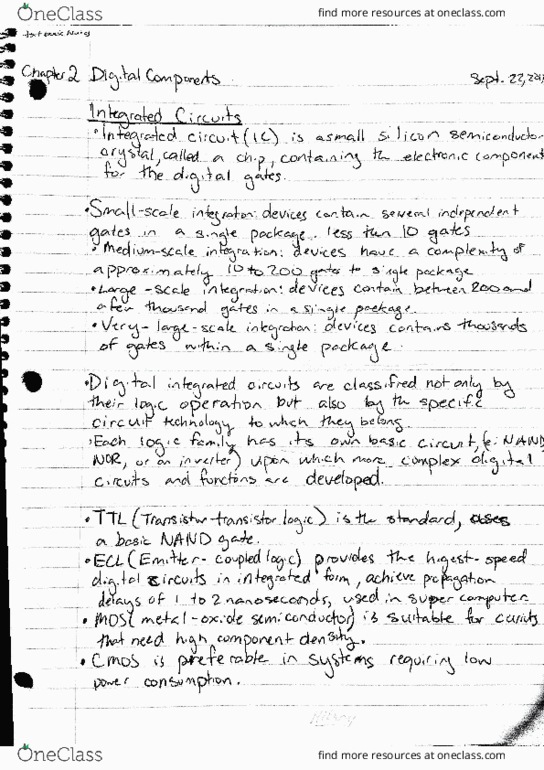 OneClass
find more resources at oneclass.com
Chapter 2 Digital Components
Sept. 22,
Integrated Circuits
• Integrated circuit (IC) is a small silicon semiconductor
crystal, called a chip, containing the electronic component
for the digital gates.
• Small-scale integration: devices contain several independent
gates in a single package. less than 10 gates
• Medium-scale integration: devices have a complexity of
approximately 10 to 200 gates to single package
• Large-scale integration: devices contain between 200 and
a few thousand gates in a single package
• Very-large-scale integration: devices contains thousands
of gates within a single package.
• Digital integrated circuits are classifired not only by
their logic operation but also by the specific
circuit technology to which they belong.
• Each logic family has its own basic circuit, (ie: NAND
NOR, or an inverter) upon which more complex digital
circuits and functions are developed.
• TTL (Transistor-transistor logic) is the standard, uses
a basic NAND gate.
• ECL (Emitter-coupled logic) provides the higest-speed
digital circuits in integrated form, achieve propagation
delays of 1 to 2 nanoseconds, used in super computer
• MOS( metal-oxide semiconductor) is suitable for circuits
that need high component density.
• CMOS is preferable in systems requiring low
power consumption.
OneClass
find more resources at oneclass.com